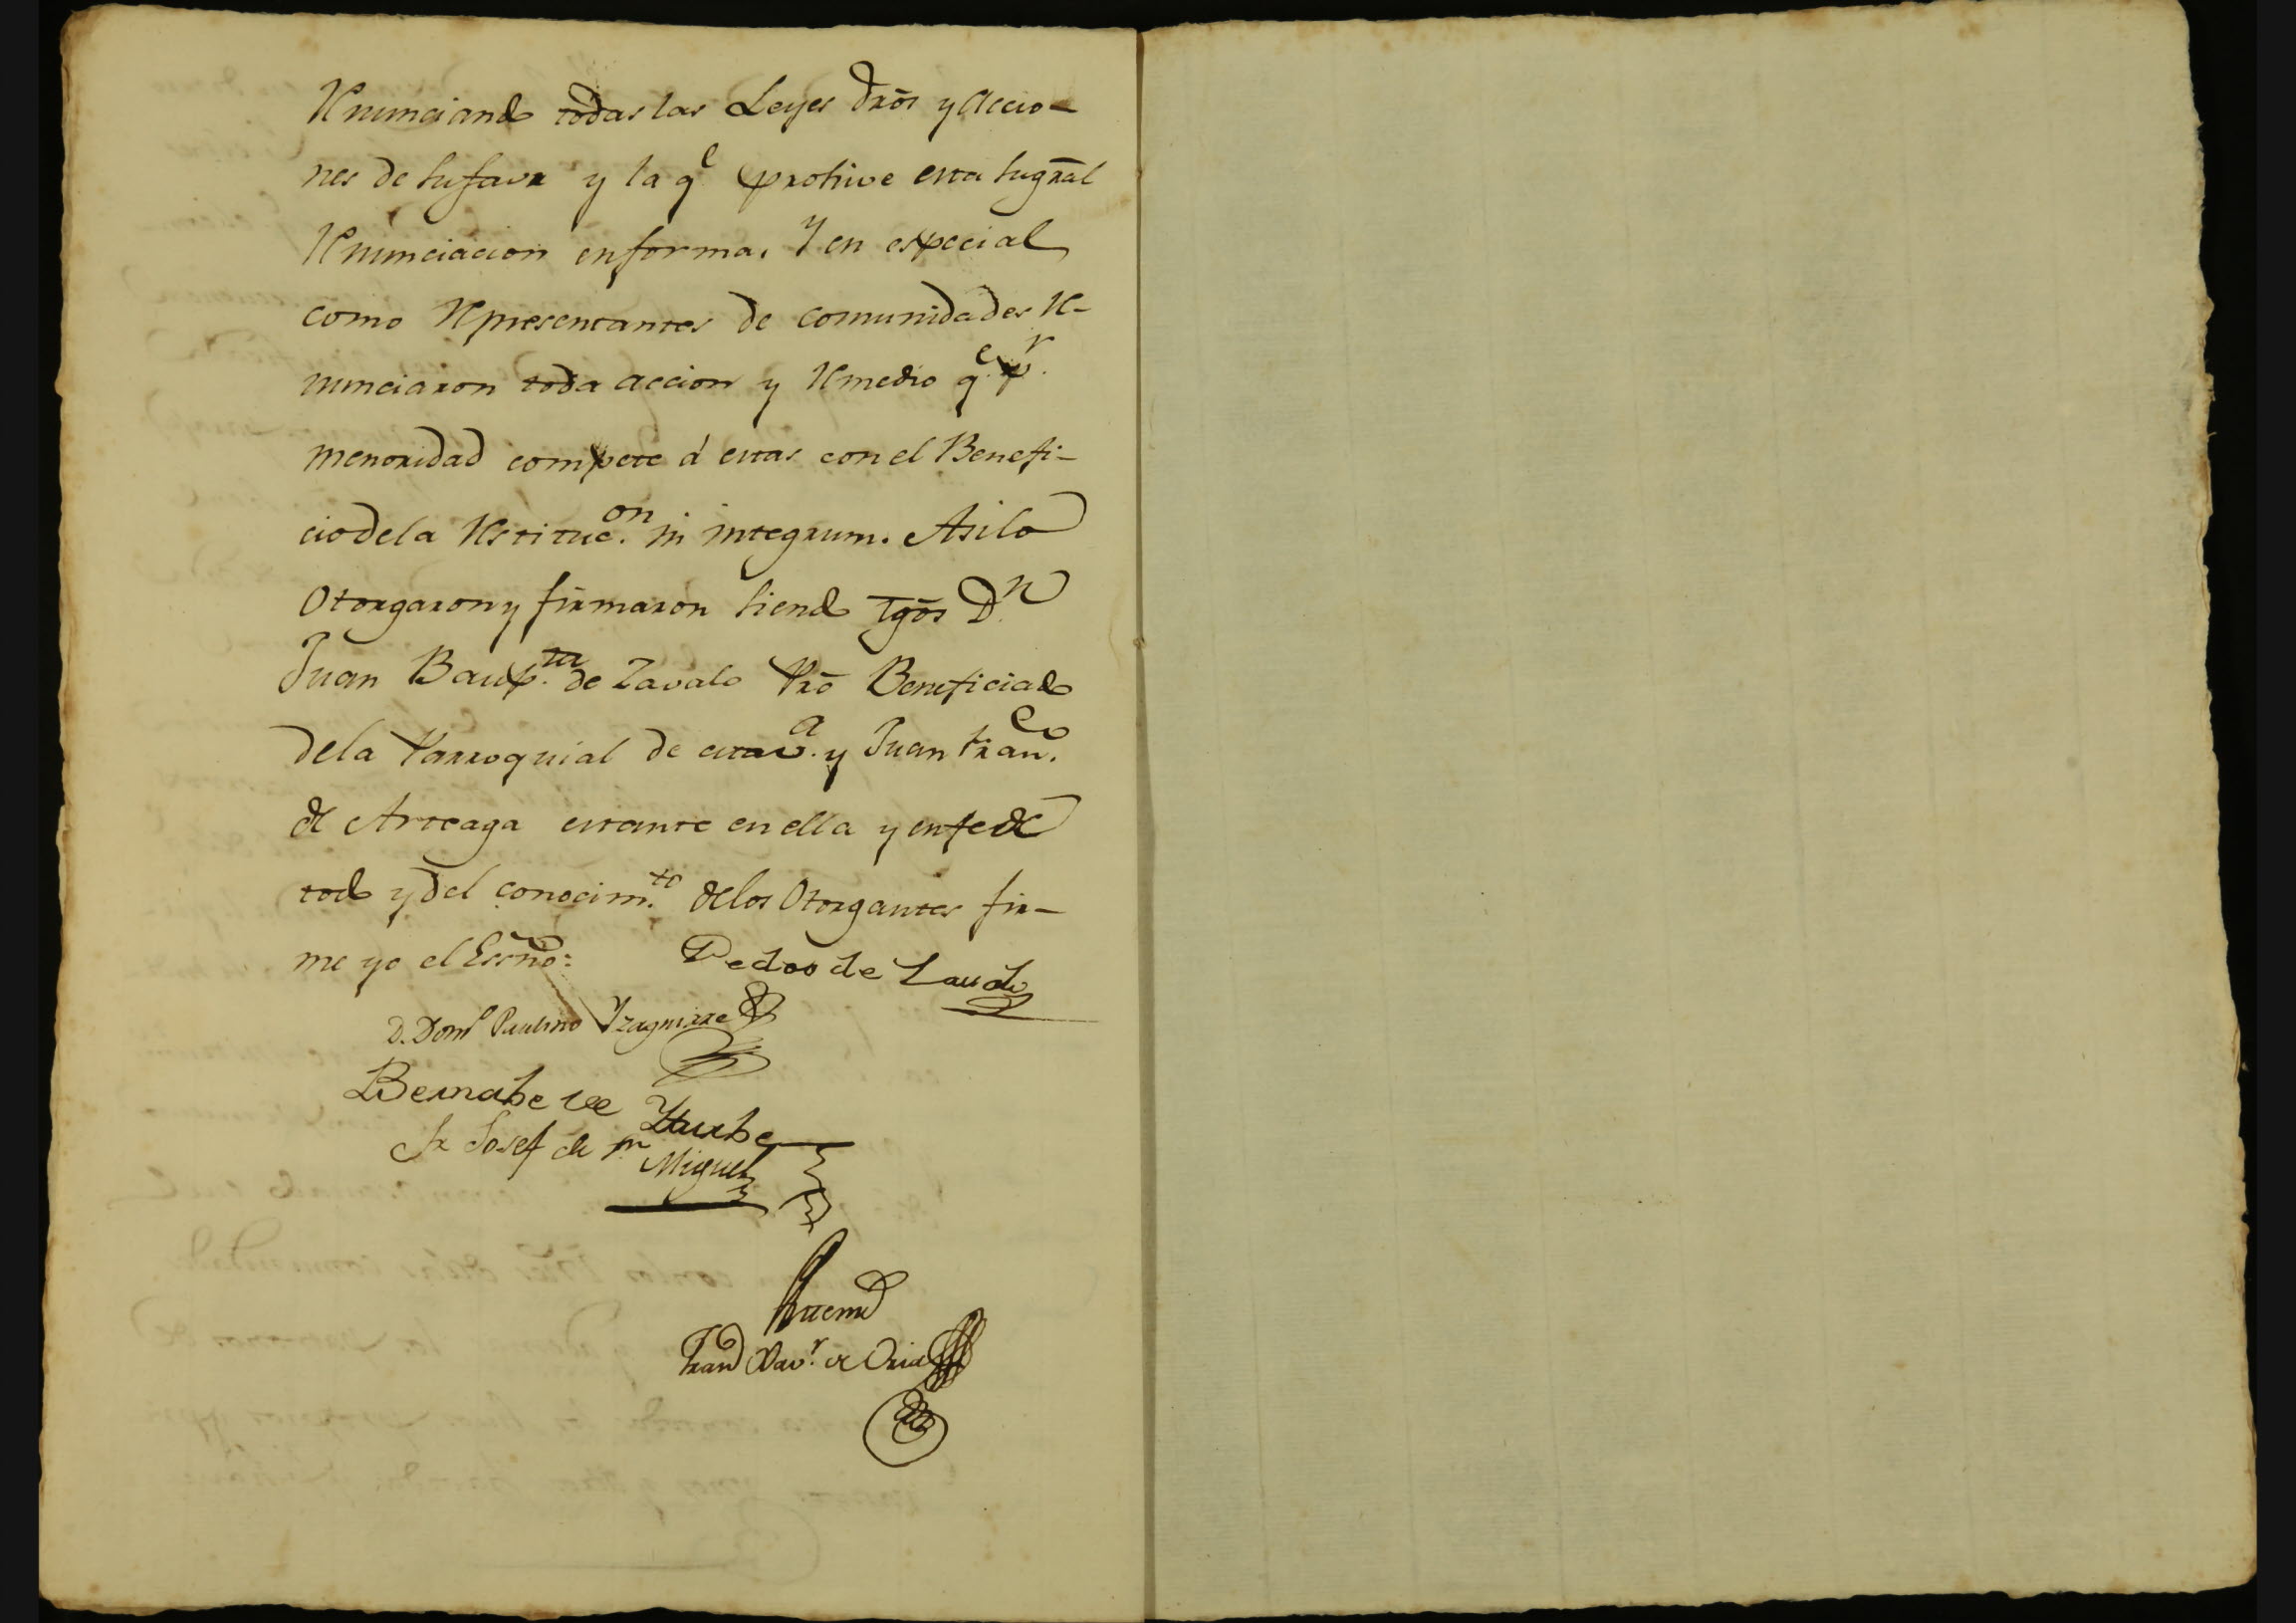 Renunciando todas las Leyes dros y accio-
nes de su favor y la q.e prohive esta su gral
Renunciacion en forma. Y en especial
como Representantes de comunidades re-
nunciaron toda accion y Remedio q.e p.r
menoridad compete á estas con el Benefi-
cio de la Restituc.on in integrum. Asi lo
Otorgaron y firmaron siendo tgos D.n
Juan Baup.ta de Zavalo Pro Beneficiado
de la Parroquial de esta v.a y Juan Fran.co
de Arteaga estante en ella y en fe de
todo y del conocim.to de los Otorgantes fir-
me yo el Essno:
Pedro de
D. Dom.o Paulino Yzaguirre
Bernabe de Yturbe
Fr Josef de Sn Miguel
Ante mi
Fran.co Xav.r de Oria